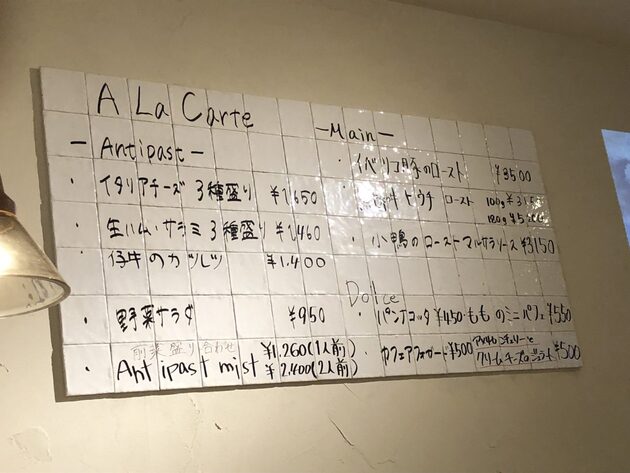 A La Carte
-Antipast-
・イタリアチーズ 3種盛り ¥1,650
・生ハム・サラミ 3種盛り ¥1,460
仔牛のカツレツ ¥1,400
・野菜サラダ ¥950
前菜盛り合わせ
・Antipast mist ¥1,260(1人前)
¥2,400(2人前)
-Main-
・イベリコ豚のロースト ¥3500
ロースト 100g ¥
・小鴨のローストマルサラソース ¥3150
Dolce
・パンナコッタ ¥450・もものミニパフェ ¥550
・カフェアフォガード ¥500
クリームチーズのジェラート ¥500